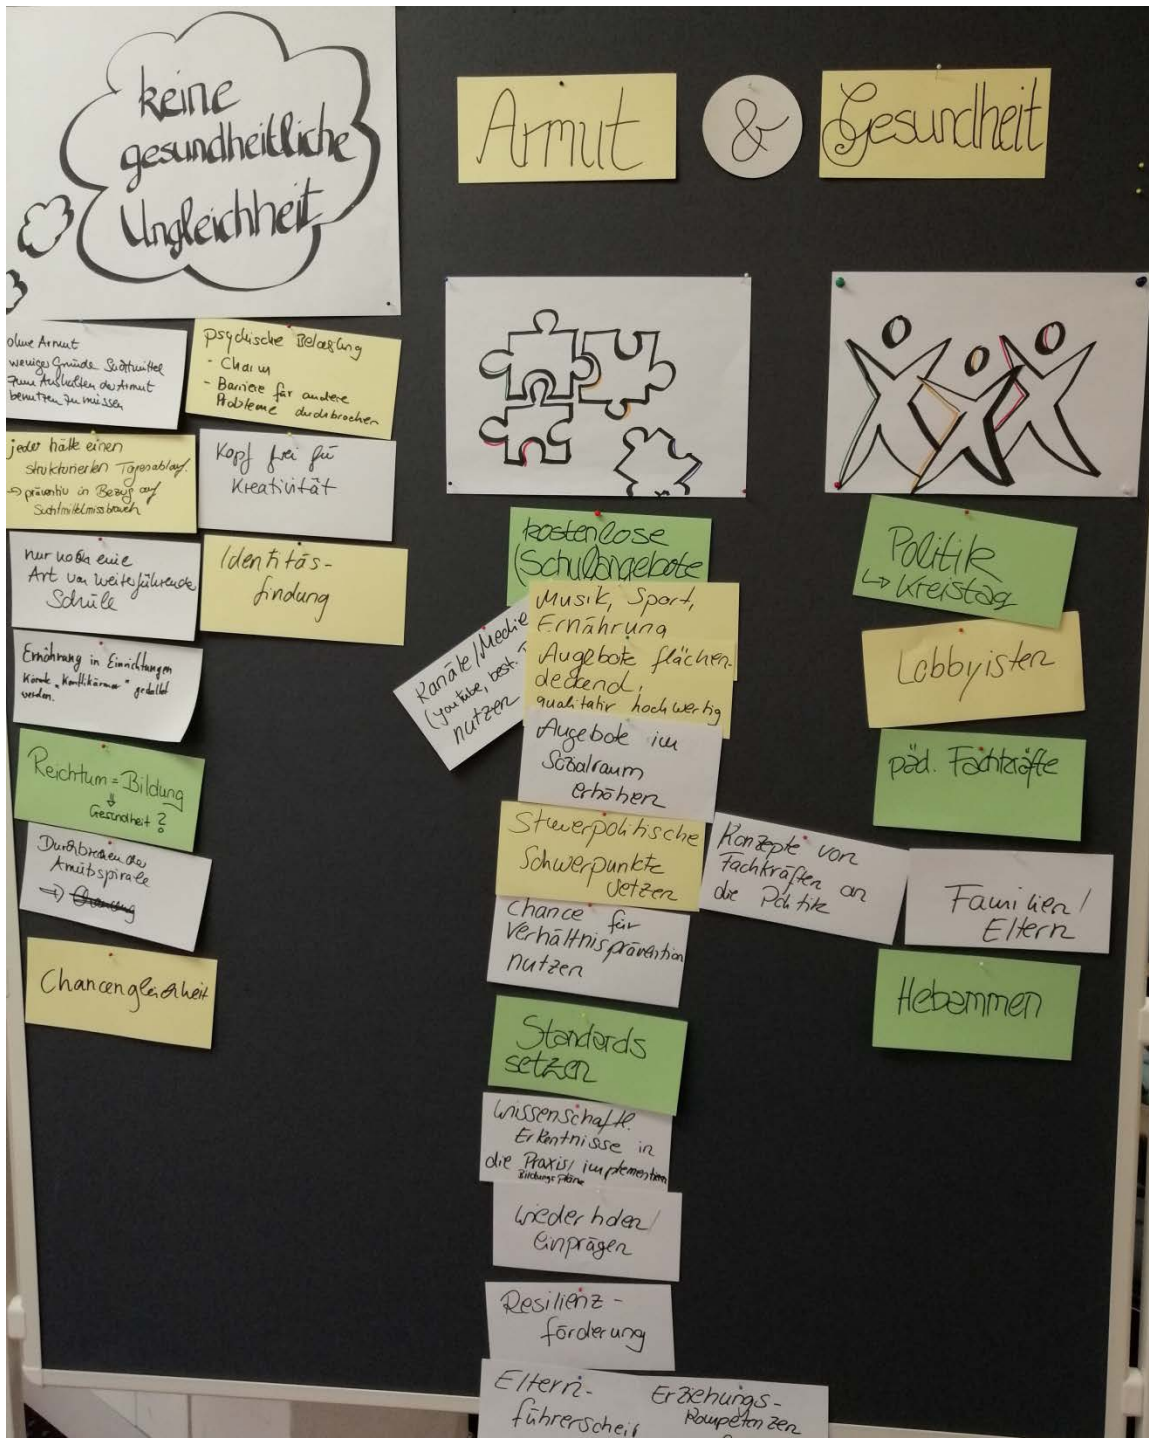 keine
gesundheitliche
Ungleichheit
Armut
&
Gesundheit
ohne Armut
weniger Gründe Suchtmittel
zum Aushalten der Armut
benutzen zu müssen
psychische Belastung
- Charm
- Barriere für andere
Probleme durchbrochen
jeder hätte einen
strukturierten Tagesablauf.
→ präventiv in Bezug auf
Suchtmittelmissbrauch
Kopf frei für
Kreativität
nur noch eine
Art von weiterführende
Schule
Identitäs-
findung
Ernährung in Einrichtungen
werden.
Reichtum = Bildung
⇓
Gesundheit ?
Durchbrechen der
Armutsspirale
→
Chancengleichheit
kostenlose
(Schul)angebote
Musik, Sport,
Ernährung
Angebote flächen-
deckend,
qualitativ hochwertig
Kanäle/Medie
(youtube, best.
nutzen
Angebote im
Sozialraum
erhöhen
Steuerpolitische
Schwerpunkte
setzen
Konzepte von
Fachkräften an
die Politik
Chance für
Verhältnisprävention
nutzen
Standards
setzen
Wissenschaftl.
Erkentnisse in
die Praxis/ implementieren
Bildungspläne
Wiederholen/
einprägen
Resilienz-
förderung
Eltern-
führerschei
Erziehungs-
kompetenzen
Politik
↳ Kreistag
Lobbyisten
päd. Fachkräfte
Familien/
Eltern
Hebammen